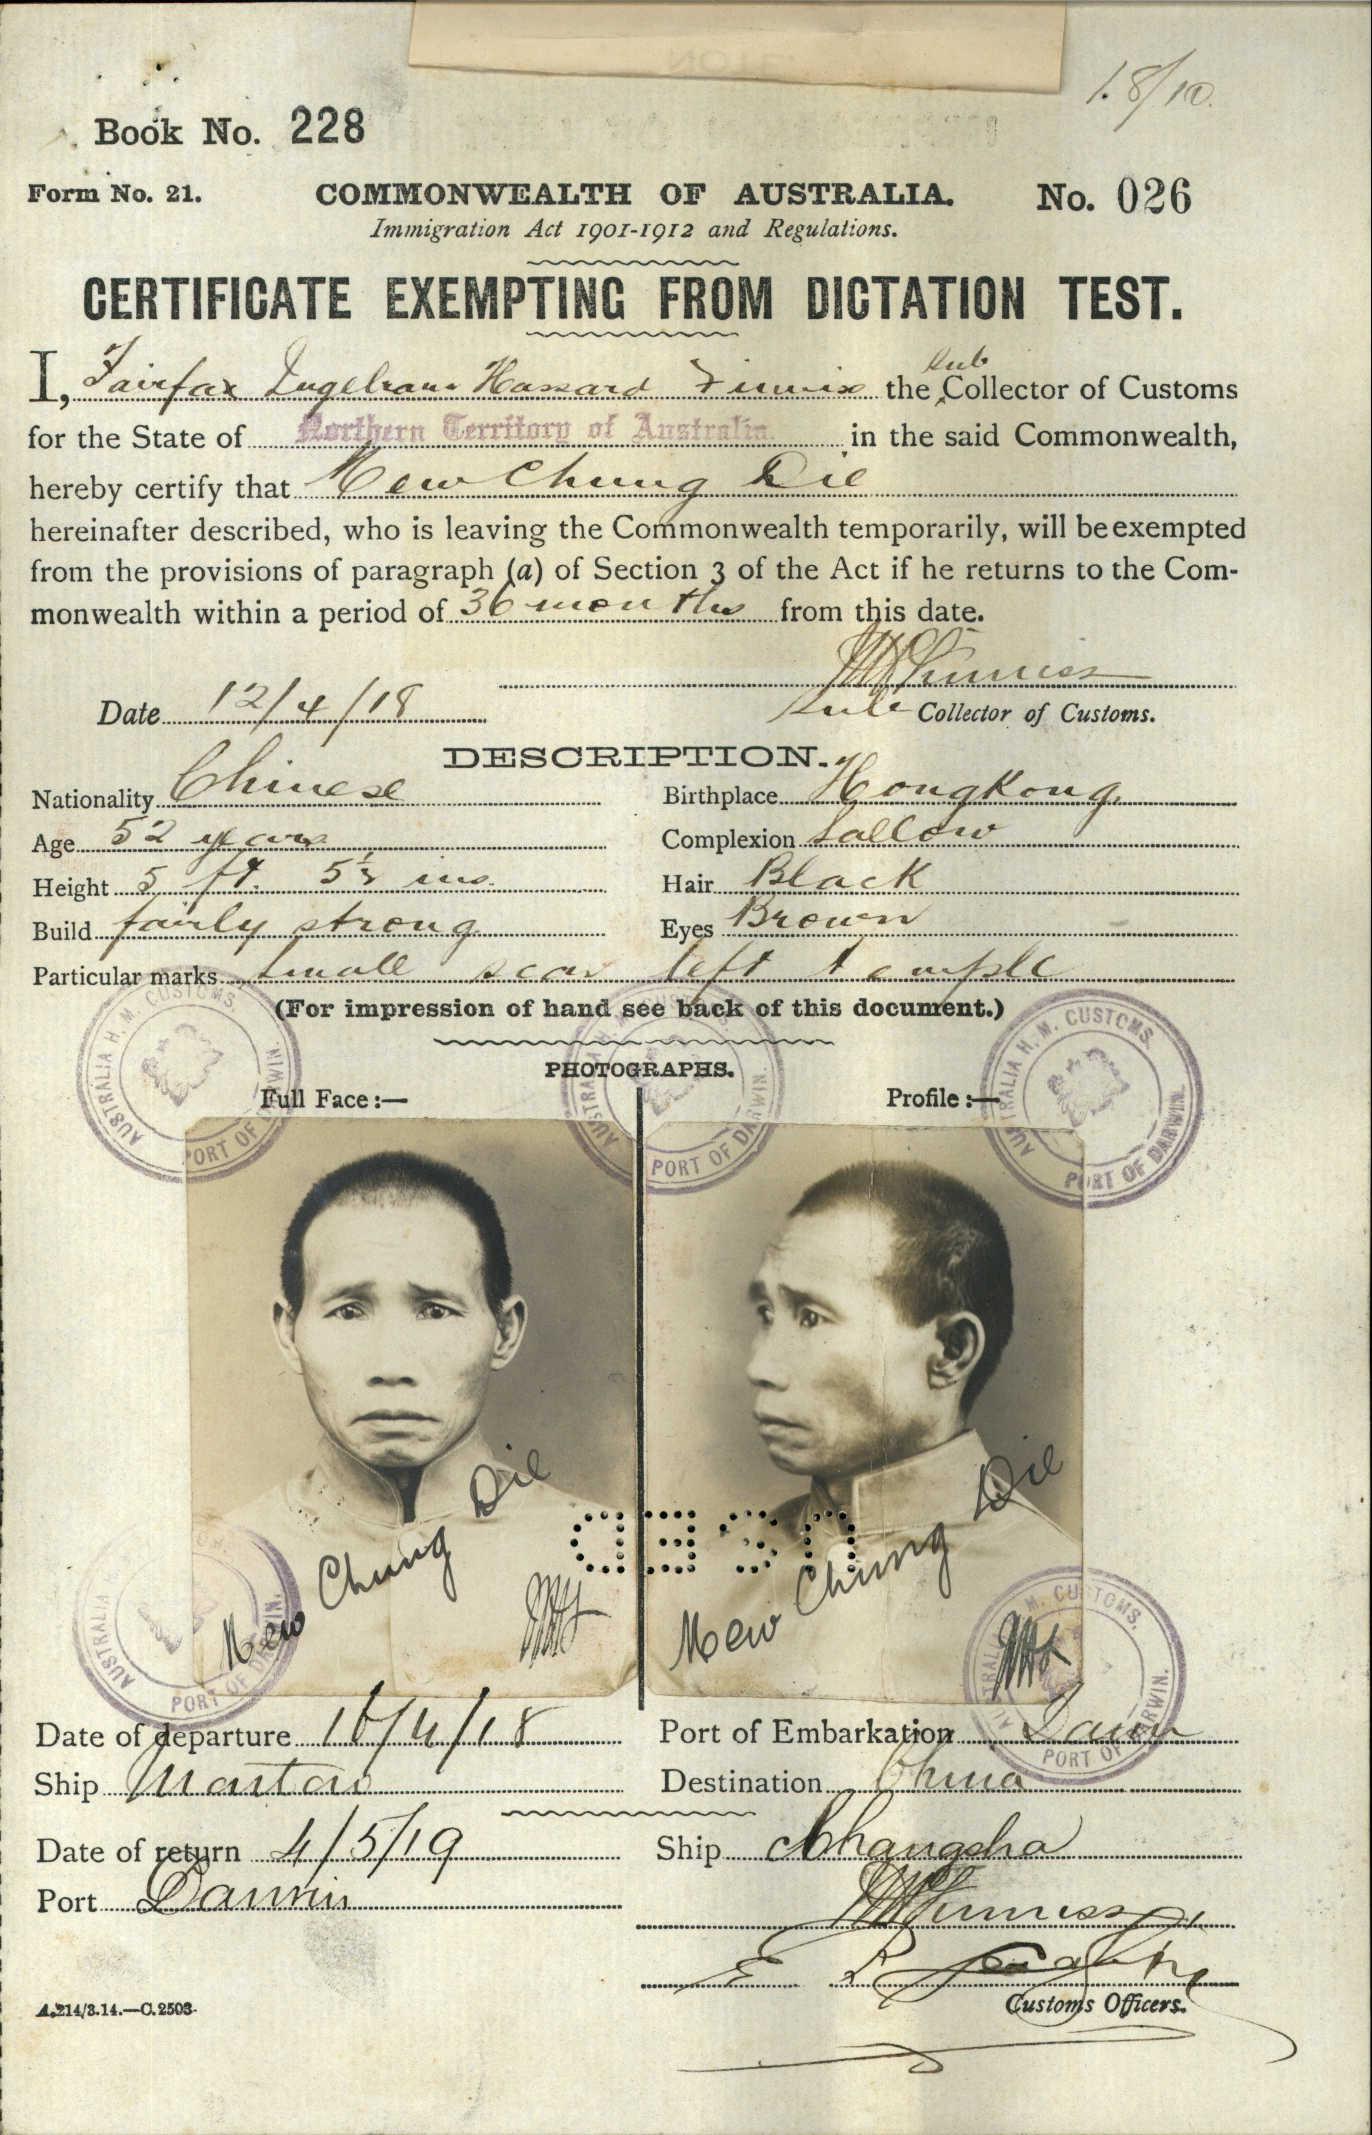 18/10.
Book No. 228
Form No. 21. COMMONWEALTH OF AUSTRALIA. No. 026
Immigration Act 1901-1912 and Regulations.
CERTIFICATE EXEMPTING FROM DICTATION TEST.
I, Fairfax Ingelram Hassard Finniss the Sub Collector of Customs
for the State of Northern Territory of Australia in the said Commonwealth,
hereby certify that Mew Chung Die
hereinafter described, who is leaving the Commonwealth temporarily, will be exempted
from the provisions of paragraph (a) of Section 3 of the Act if he returns to the Com-
monwealth within a period of 36 months from this date.
Finniss
Date 12/4/18 Sub Collector of Customs.
DESCRIPTION.
Nationality Chinese Birthplace HongKong
Age 52 years Complexion Sallow
Height 5 ft. 5½ ins. Hair Black
Build fairly strong Eyes Brown
Particular marks small scar left temple
(For impression of hand see back of this document.)
PHOTOGRAPHS.
Full Face:— Profile:—
AUSTRALIA H. M. CUSTOMS. PORT OF DARWIN.
AUSTRALIA H. M. CUSTOMS. PORT OF DARWIN.
AUSTRALIA H. M. CUSTOMS. PORT OF DARWIN.
Mew Chung Die
Mew Chung Die
AUSTRALIA PORT OF DARWIN.
AUSTRALIA H. M. CUSTOMS. PORT OF DARWIN.
Date of departure 16/4/18 Port of Embarkation Darwin
Ship Mautaw Destination China
Date of return 4/5/19 Ship Changsha
Port Darwin
Finniss
E R
Customs Officers.
A.214/3.14.—C.2503.